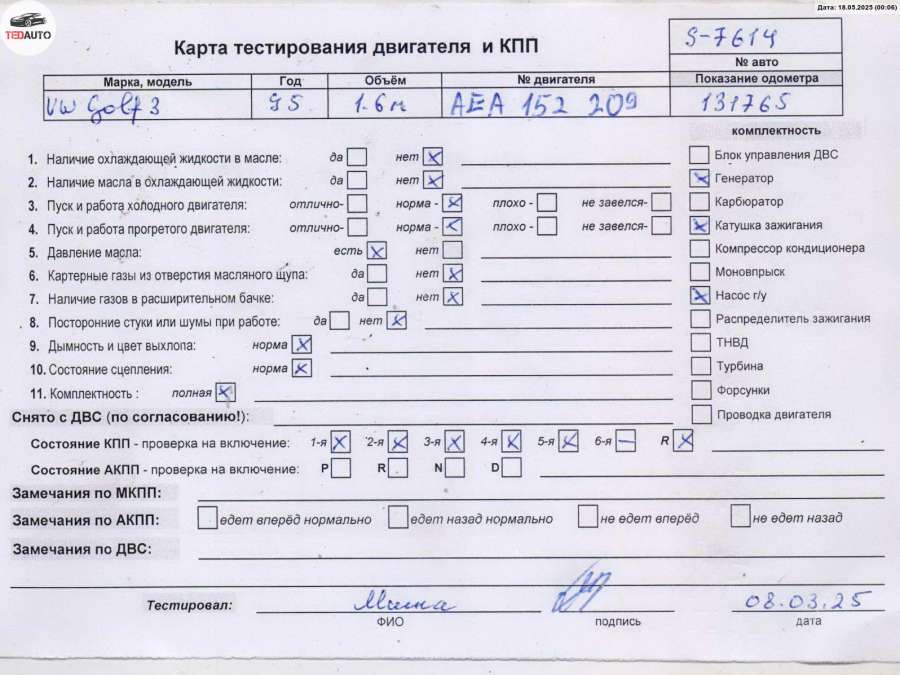 Дата: 18.05.2025 (00:06)
TEDAUTO
Карта тестирования двигателя и КПП
S-7614
№ авто
Марка, модель Год Объём № двигателя Показание одометра
VW Golf 3 95 1.6 м АЕА 152 209 131765
комплектность
1. Наличие охлаждающей жидкости в масле: да нет
Блок управления ДВС
2. Наличие масла в охлаждающей жидкости: да нет
Генератор
3. Пуск и работа холодного двигателя: отлично- норма - плохо - не завелся-
Карбюратор
4. Пуск и работа прогретого двигателя: отлично- норма - плохо - не завелся-
Катушка зажигания
5. Давление масла: есть нет
Компрессор кондиционера
6. Картерные газы из отверстия масляного щупа: да нет
Моновпрыск
7. Наличие газов в расширительном бачке: да нет
Насос г/у
8. Посторонние стуки или шумы при работе: да нет
Распределитель зажигания
9. Дымность и цвет выхлопа: норма
ТНВД
10. Состояние сцепления: норма
Турбина
11. Комплектность : полная
Форсунки
Снято с ДВС (по согласованию!):
Проводка двигателя
Состояние КПП - проверка на включение: 1-я 2-я 3-я 4-я 5-я 6-я R
Состояние АКПП - проверка на включение: P R N D
Замечания по МКПП:
Замечания по АКПП: едет вперёд нормально едет назад нормально не едет вперёд не едет назад
Замечания по ДВС:
Тестировал: 08.03.25
ФИО подпись дата